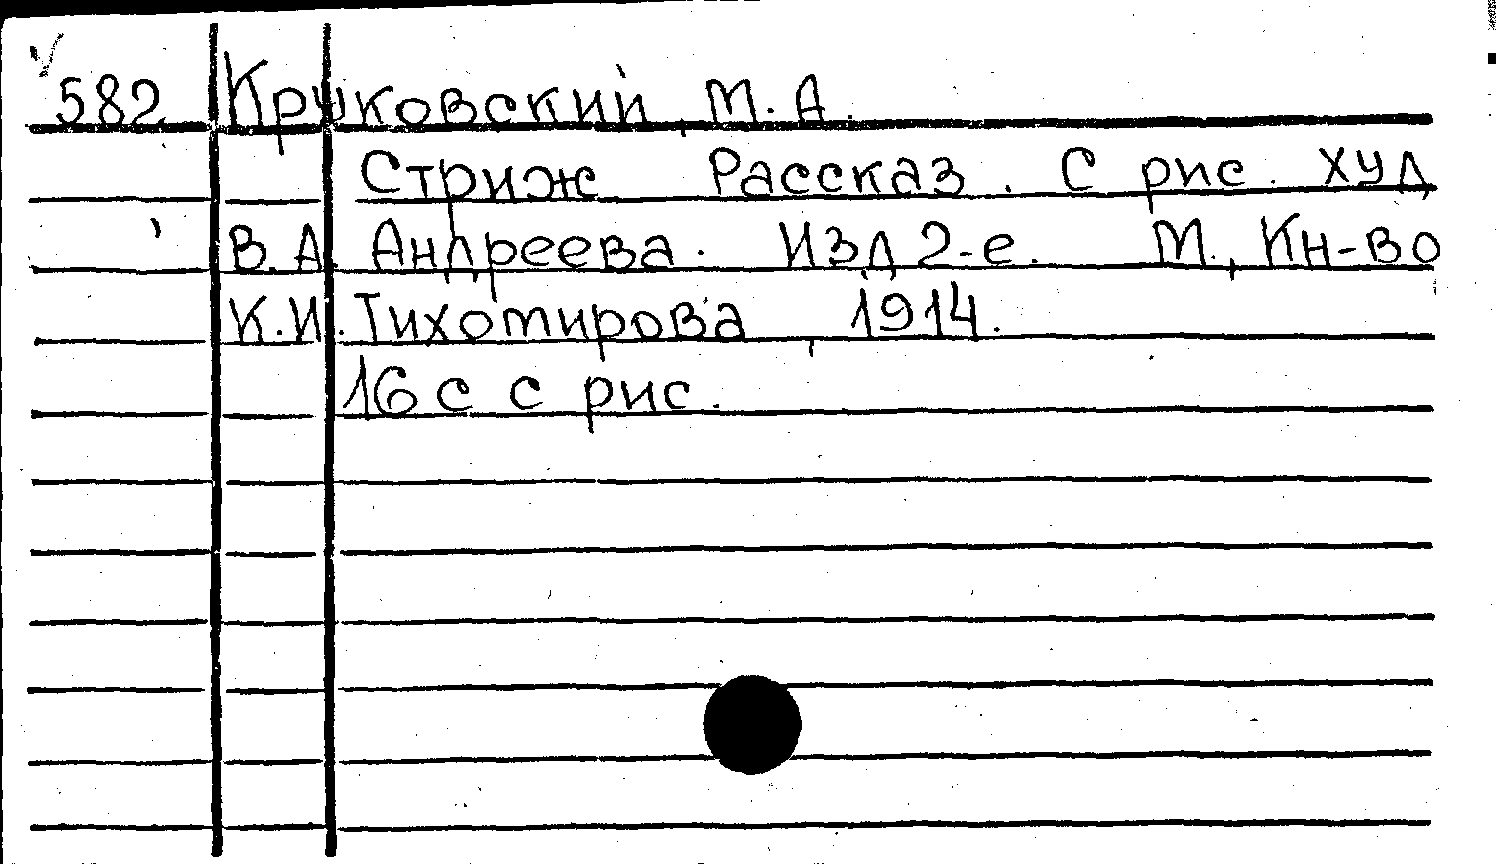 582 Круковский, М.А.
Стриж Рассказ. С рис. худ
В.А. Андреева. Изд 2-е. М., Кн-во
К.И. Тихомирова, 1914.
16 с с рис.